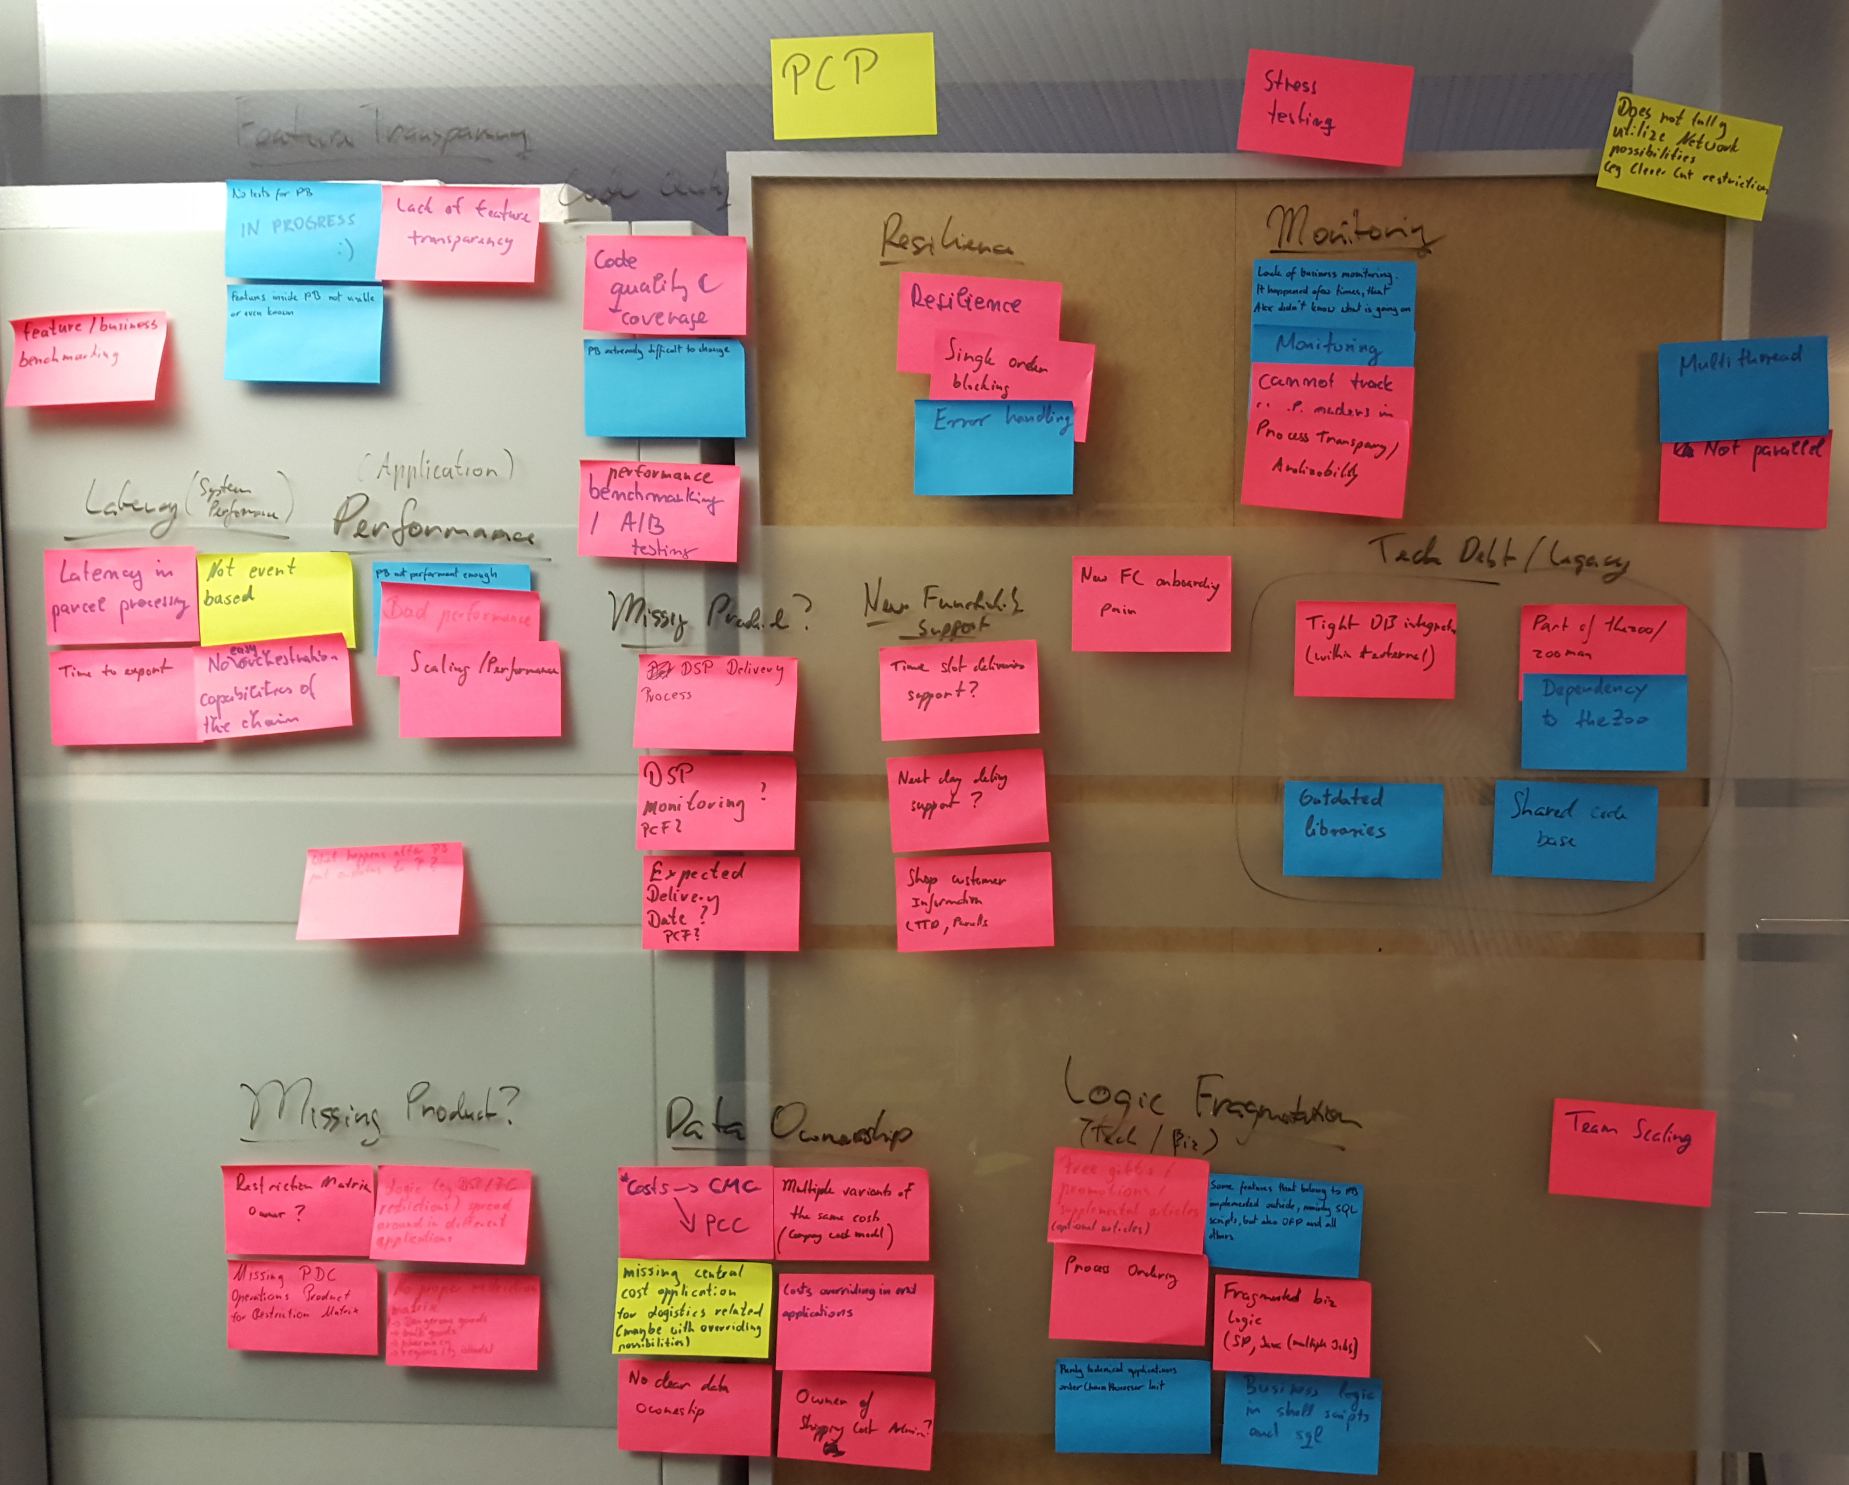 PCP
Stress
testing
Does not fully
utilize Network
possibilities
(eg Clever Cut restriction
Feature Transparency
No tests for PB
IN PROGRESS
:)
Lack of feature
transparency
Features inside PB not visible
or even known
feature/business
benchmarking
Code
Code
quality
coverage
PB extremely difficult to change
performance
benchmarking
/ A/B
testing
Resilience
Resilience
Single order
blocking
Error handling
Monitoring
Lack of business monitoring.
It happened few times, that
Alex didn't know what is going on
Monitoring
Cannot track
in
Process Transpancy/
Multithread
Not parallel
Latency (System
Performance)
Latency in
parcel processing
Not event
based
Time to export
No easy orchestration
capabilities of
the chain
(Application)
Performance
PB not performant enough
Bad performance
Scaling/Performance
Missing Product?
DSP Delivery
Process
DSP
monitoring?
PCF?
Expected
Delivery
Date?
PCF?
New
Support
Time slot deliveries
support?
Next day delivery
support?
Shop customer
Information
New FC onboarding
pain
Tech Debt/Legacy
Tight DB integrat
(within & external)
Part of thezoo/
zooman
Dependency
to the Zoo
Outdated
libraries
Shared code
base
What happens after PB
put to
Missing Product?
Restriction Matrix
Owner?
Logic (eg DSP/FC
restrictions) spread
around in different
applications
Missing PDC
Operations Product
for Restriction Matrix
No proper restriction
matrix
-> Dangerous goods
-> bulk goods
-> pharmacy
Data Ownership
*Costs -> CMC
↘ PCC
Multiple variants of
the same costs
(Company cost model)
missing central
cost application
for logistics related
(maybe with overriding
possibilities)
Costs overriding in
applications
No clear data
Owneship
Owner of
Shipping Cost Admin?
Logic Fragmentation
(Tech/Biz)
Free gifts/
promotions/
supplemental articles
(optional articles)
Some features that belong to PB
implemented outside, mainly SQL
scripts, but also OFP and all
others
Process Ordering
Fragmented biz
Logic
(SP, Java (multiple Jobs)
Purely technical applications
under Chain Processor Unit
Business logic
in shell scripts
and sql
Team Scaling